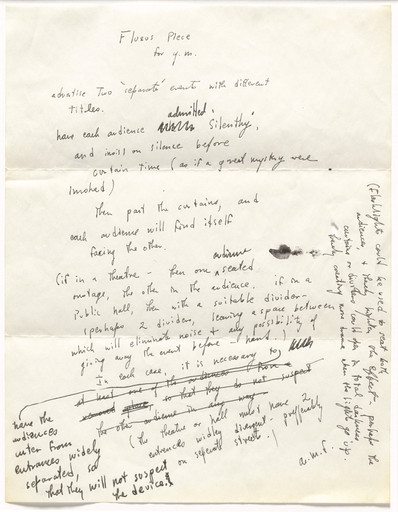 Fluxus Piece
for G.M.
advertise Two "separate" events with different
titles.
have each audience admitted "silently",
and insist on silence before
curtain time (as if a great mystery were
involved)
Then part the curtains, and
each audience will find itself
facing the other.
(if in a theatre - then one audience seated
onstage, the other in the audience. if in a
Public hall, then with a suitable divider -
(perhaps 2 dividers, leaving a space between
which will eliminate noise + any possibility of
giving away the event before-hand)
In each case, it is necessary to
at least one of the audiences (from
so that they do not suspect
the other audience in any way
have the
audiences
enter from
entrances widely
separated, so
that they will not suspect
the device.
(The theatre or hall must have 2
entrances widley divergent - preferably
on seperate streets.)
a.m.f.
(Flashlights could be used to
audiences + the effect - perhaps the
curtains or dividers could open in total darkness
thereby creating more drama when the lights go up.